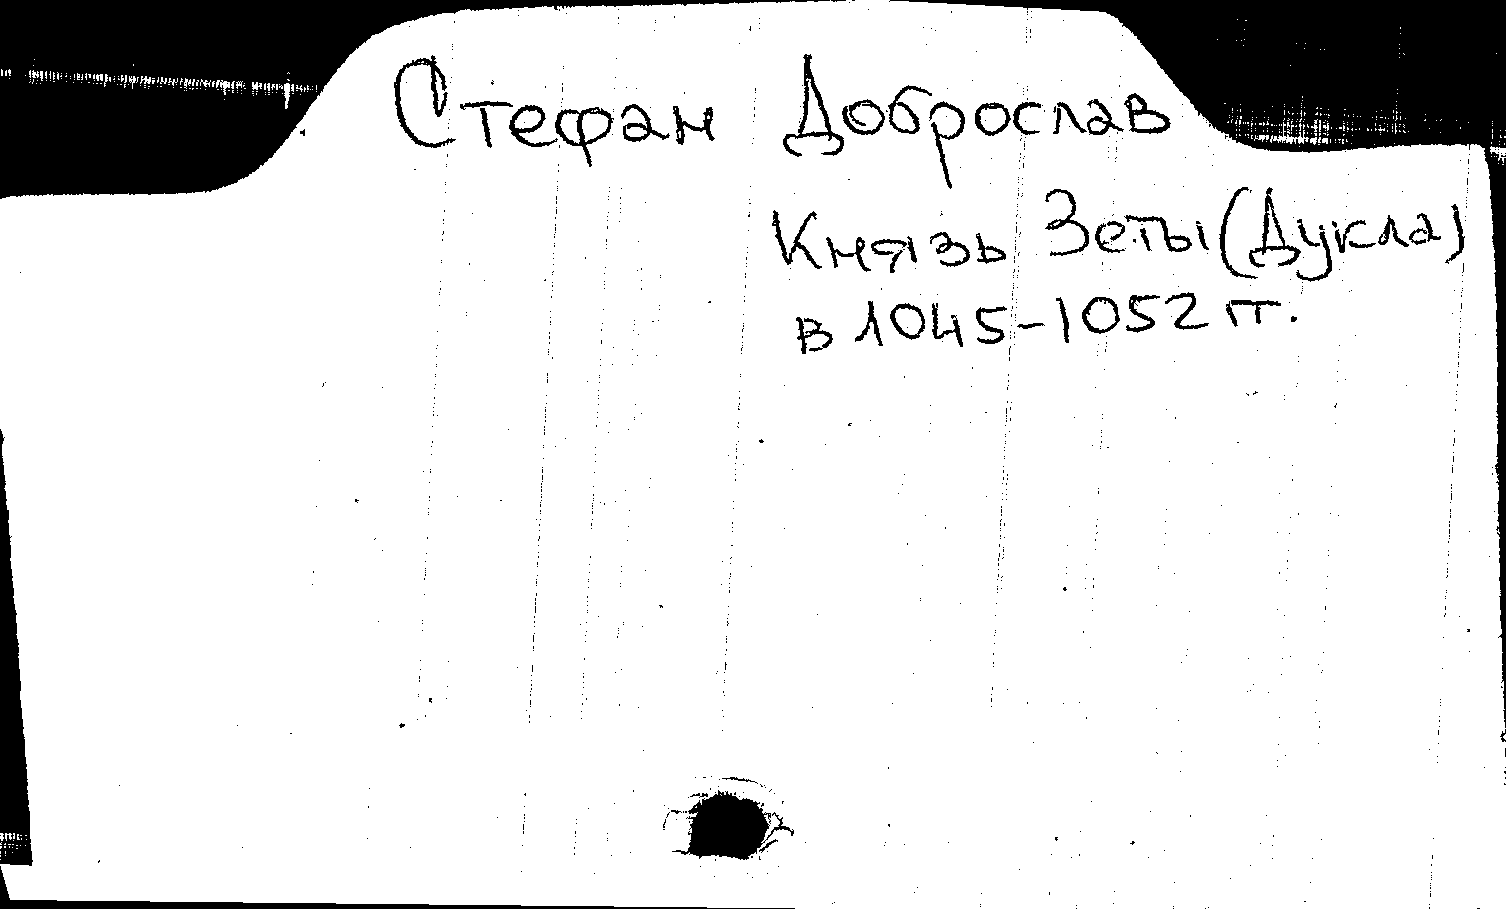 Стефан Доброслав
Князь Зеты (Дукла)
в 1045-1052 гг.